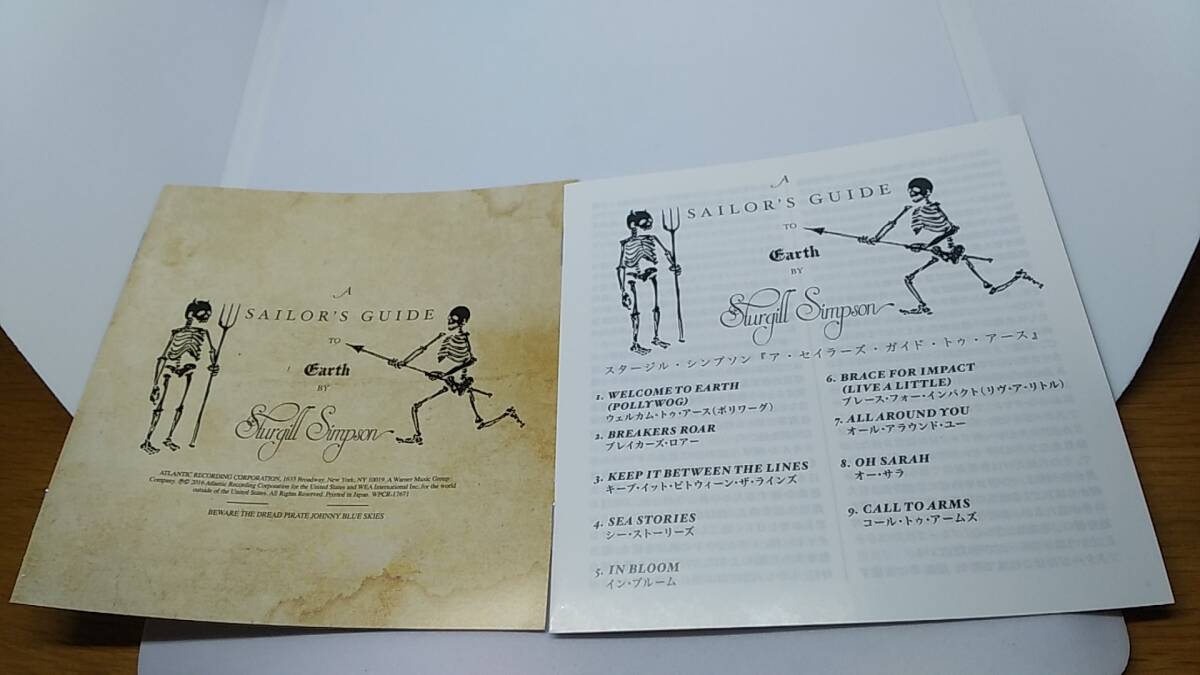 A
SAILOR'S GUIDE
TO
Earth
BY
Sturgill Simpson
ATLANTIC RECORDING CORPORATION, 1633 Broadway, New York, NY 10019. A Warner Music Group
Company. ℗© 2016 Atlantic Recording Corporation for the United States and WEA International Inc. for the world
outside of the United States. All Rights Reserved. Printed in Japan. WPCR-17671
BEWARE THE DREAD PIRATE JOHNNY BLUE SKIES
A
SAILOR'S GUIDE
TO
Earth
BY
Sturgill Simpson
スタージル・シンプソン『ア・セイラーズ・ガイド・トゥ・アース』
1. WELCOME TO EARTH
(POLLYWOG)
ウェルカム・トゥ・アース(ポリワーグ)
2. BREAKERS ROAR
ブレイカーズ・ロアー
3. KEEP IT BETWEEN THE LINES
キープ・イット・ビトウィーン・ザ・ラインズ
4. SEA STORIES
シー・ストーリーズ
5. IN BLOOM
イン・ブルーム
6. BRACE FOR IMPACT
(LIVE A LITTLE)
ブレース・フォー・インパクト(リヴ・ア・リトル)
7. ALL AROUND YOU
オール・アラウンド・ユー
8. OH SARAH
オー・サラ
9. CALL TO ARMS
コール・トゥ・アームズ